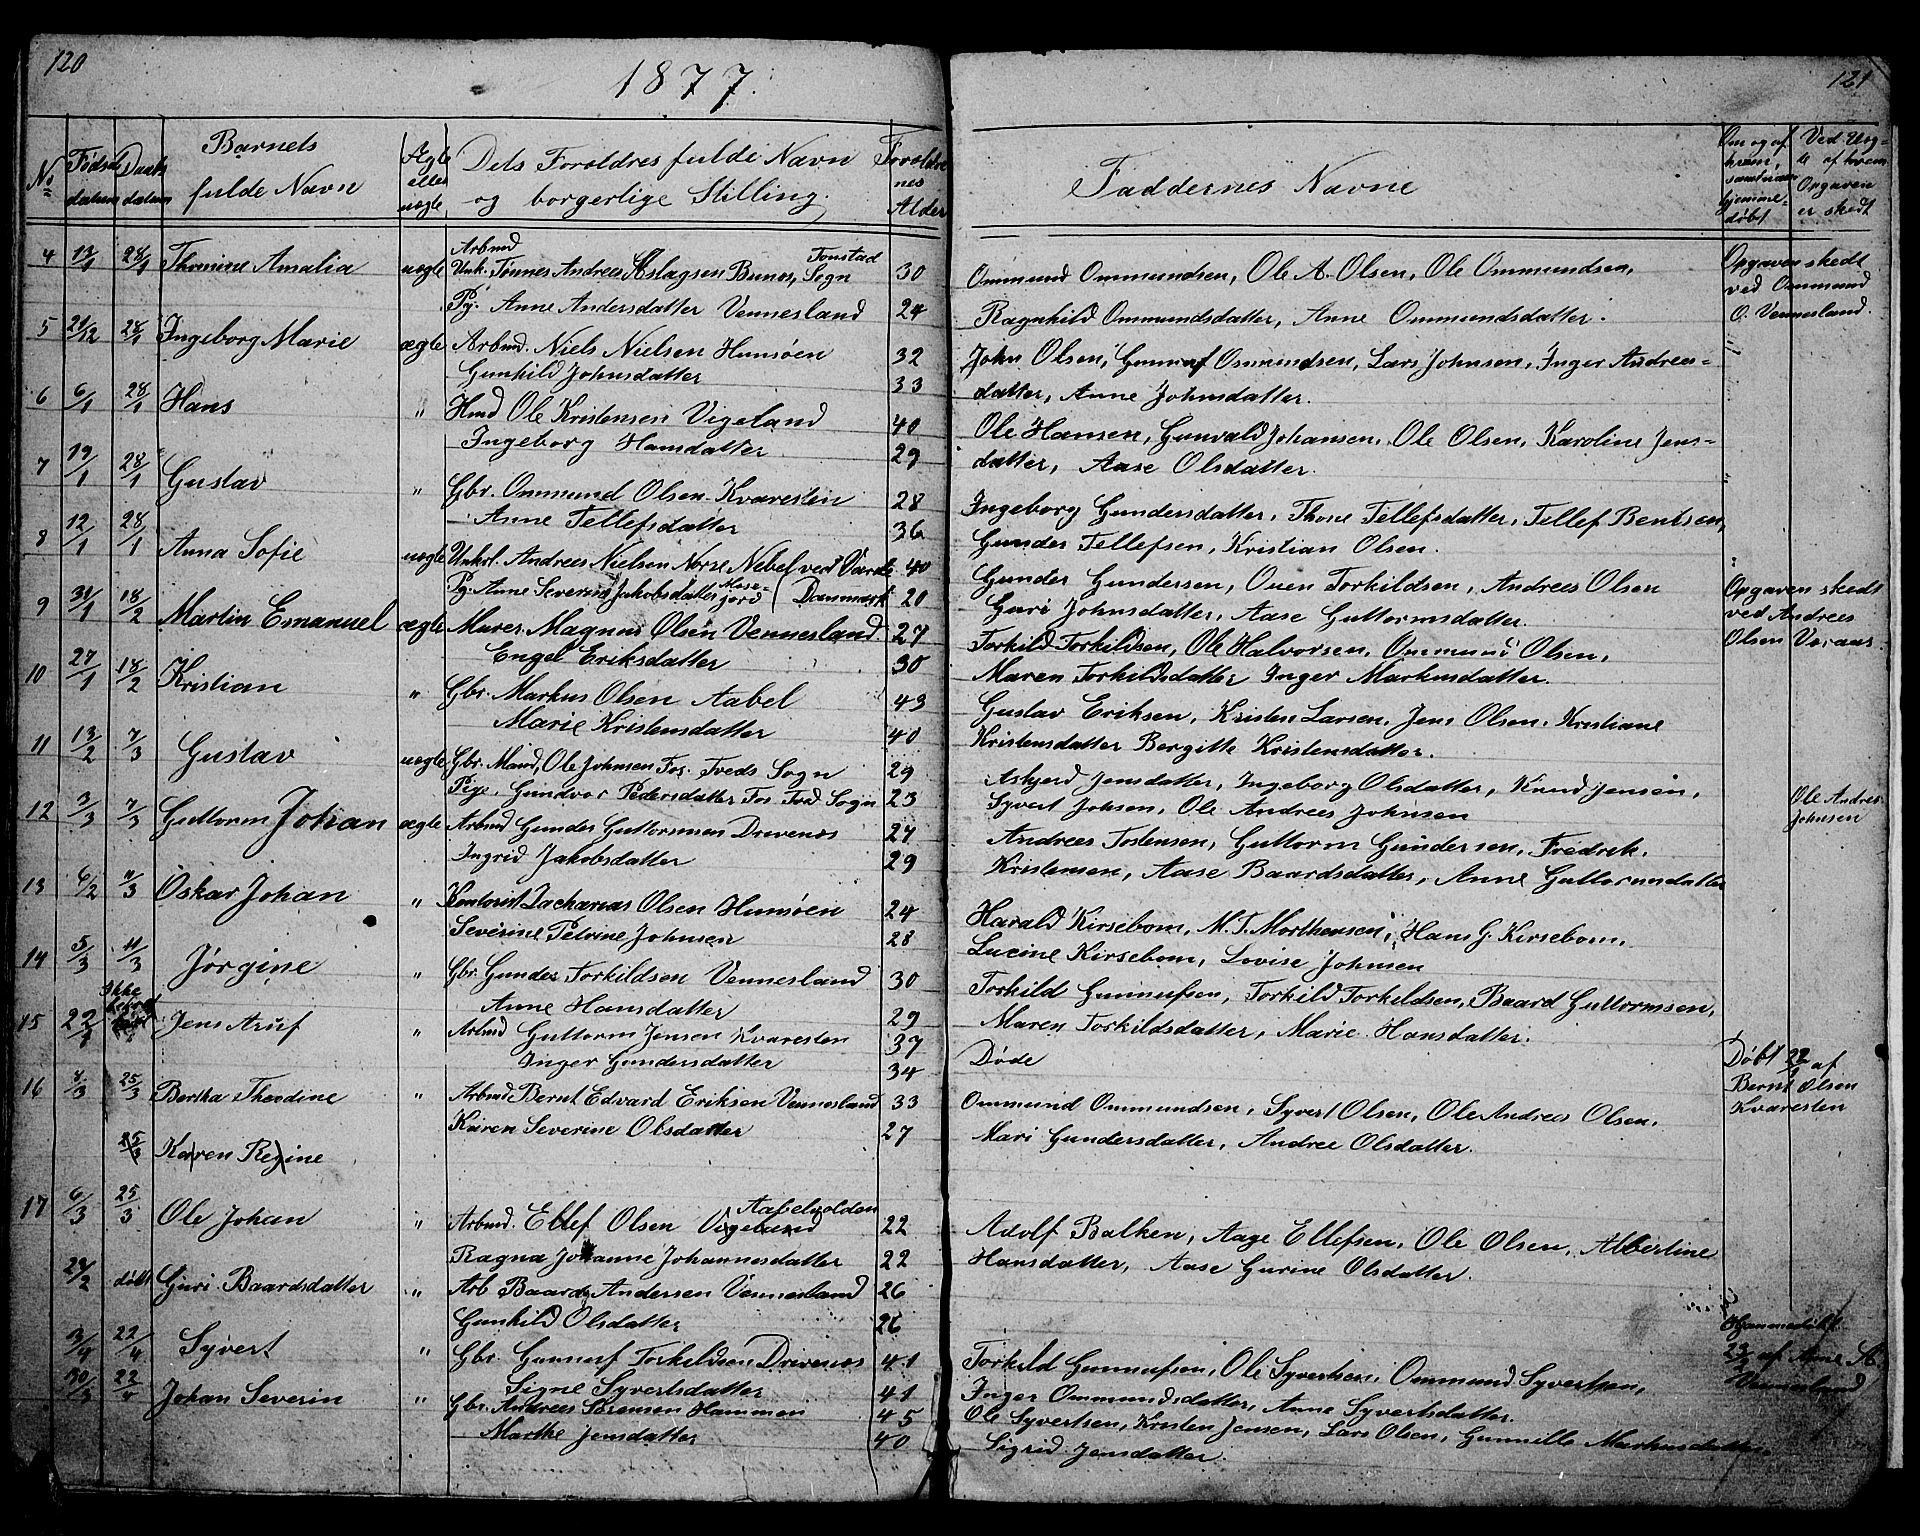 120
1877.
121
No
Fødsels
datum
Daabs
datum
Barnets
fulde Navn
Ægte
eller
uægte
Dets Foreldres fulde Navn
og borgerlige Stilling.
Foreldre
nes
Alder
Faddernes Navne
Om og af
hvem,
hjemme-
døbt
Ved Uæg-
te af hvem
Opgaven
er skedt
4 13/1 28/1 Thomine Amalia uægte Arbmd
Unk. Tønnes Andreas Aslagsen Bunes, Tonstad Sogn 30 Ommund Ommundsen, Ole A. Olsen, Ole Ommundsen, Opgaven skedt
ved Ommund
Pg. Anne Andersdatter Vennesland 24 Ragnhild Ommundsdatter, Anne Ommundsdatter. O. Vennesland.
5 21/12 28/1 Ingeborg Marie ægte Arbmd. Niels Nielsen Hunsøen 32 John Olsen, Gunnuf Osmundsen, Lars Johnsen, Inger Andreas-
Gunhild Johnsdatter 33 datter, Anne Johnsdatter.
6 6/1 28/1 Hans " Hmd Ole Kristensen Vigeland 40 Ole Hansen, Gunvald Johansen, Ole Olsen, Karoline Jens-
Ingeborg Hansdatter 29 datter, Aase Olsdatter.
7 19/1 28/1 Gustav " Gbr. Ommund Olsen Kvaresten 28 Ingeborg Gundersdatter, Thone Tellefsdatter, Tellef Bentsen,
Anne Tellefsdatter 36 Gunder Tellefsen, Kristian Olsen.
8 12/1 28/1 Anna Sofie uægte Unkrl. Andreas Nielsen Nørre Nebel ved Varde 40 Gunder Gundersen, Ouen Torkildsen, Andreas Olsen Opgaven skedt
Pg. Anne Severine Jakobsdatter Mose-
jord (Danmark 20 Guri Johnsdatter, Aase Guttormsdatter. ved Andreas
9 31/1 18/2 Martin Emanuel ægte Murer Magnus Olsen Vennesland 27 Torkild Torkildsen, Ole Halvorsen, Ommund Olsen, Olsen Veraas.
Engel Eriksdatter 30 Maren Torkildsdatter Inger Markusdatter.
10 27/1 18/2 Kristian " Gbr. Markus Olsen Aabel 43 Gustav Eriksen, Kristen Larsen, Jens Olsen, Kristiane
Marie Kristensdatter 40 Kristensdatter Bergitte Kristensdatter.
11 13/2 7/3 Gustav uægte Gbr. Mand, Ole Johnsen Fos. Treds Sogn 29 Askjerd Jensdatter, Ingeborg Olsdatter, Knud Jensen,
Pige, Gundvor Pedersdatter Fos. Tred Sogn 23 Syvert Johsen, Ole Andreas Johnsen Ole Andreas
Johnsen
12 3/3 7/3 Guttorm Johan ægte Arbmd Gunder Guttormsen Drivenes 27 Andreas Tostensen, Guttorm Gundersen, Fredrik
Ingrid Jakobsdatter 29 Kristensen, Aase Baardsdatter, Anne Guttormsdatter
13 6/2 11/3 Oskar Johan " Kontorist Zacharias Olsen Hunsøen 24 Harald Kirsebom, M. T. Morthensen, Hans G. Kirsebom,
Severine Petrine Johnsen 28 Lucine Kirsebom, Lovise Johnsen
14 5/3 11/3 Jørgine " Gbr. Gunder Torkildsen Vennesland 30 Torkild Gunnufsen, Torkild Torkildsen, Baard Guttormsen,
Anne Hansdatter 29 Maren Torkildsdatter, Marie Hansdatter.
15 Ikke
Jens Aruf " Arbmd Guttorm Jensen Kvaresten 37 Døde Døbt 22 af
Inger Gundersdatter 34 Bernt Olsen
16 4/3 25/3 Bertha Theodine " Arbmd Bernt Edvard Eriksen Vennesland 33 Ommund Ommundsen, Syvert Olsen, Ole Andreas Olsen, Kvaresten
Karen Severine Olsdatter 27 Mari Gundersdatter, Andree Olsdatter.
25/3 Karen Regine
17 6/3 25/3 Ole Johan " Arbmd. Ellef Olsen Vigeland Aabelvolden 22 Adolf Balken, Aage Ellefsen, Ole Olsen, Albertine
Ragna Johanne Johannesdatter 22 Hansdatter, Aase Gurine Olsdatter.
23/2 døbt Guri Baardsdatter " Arb Baard Andersen Vennesland 26
Gunhild Olsdatter 26 Hjemmedøbt
3/4 22/4 Syvert " Gbr. Gunnuf Torkildsen Drivenes 41 Torkild Gunnufsen, Ole Syvertsen, Ommund Syvertsen, 23/2 af Anne A.
Signe Syvertsdatter 41 Inger Ommundsdatter, Anne Syvertsdatter. Vennesland
30/3 22/4 Johan Severin " Gbr. Andreas Sørensen Hammen 45 Ole Syvertsen, Kristen Jensen, Lars Olsen, Gunnille Markusdatter
Marthe Jensdatter 40 Sigrid Jensdatter.